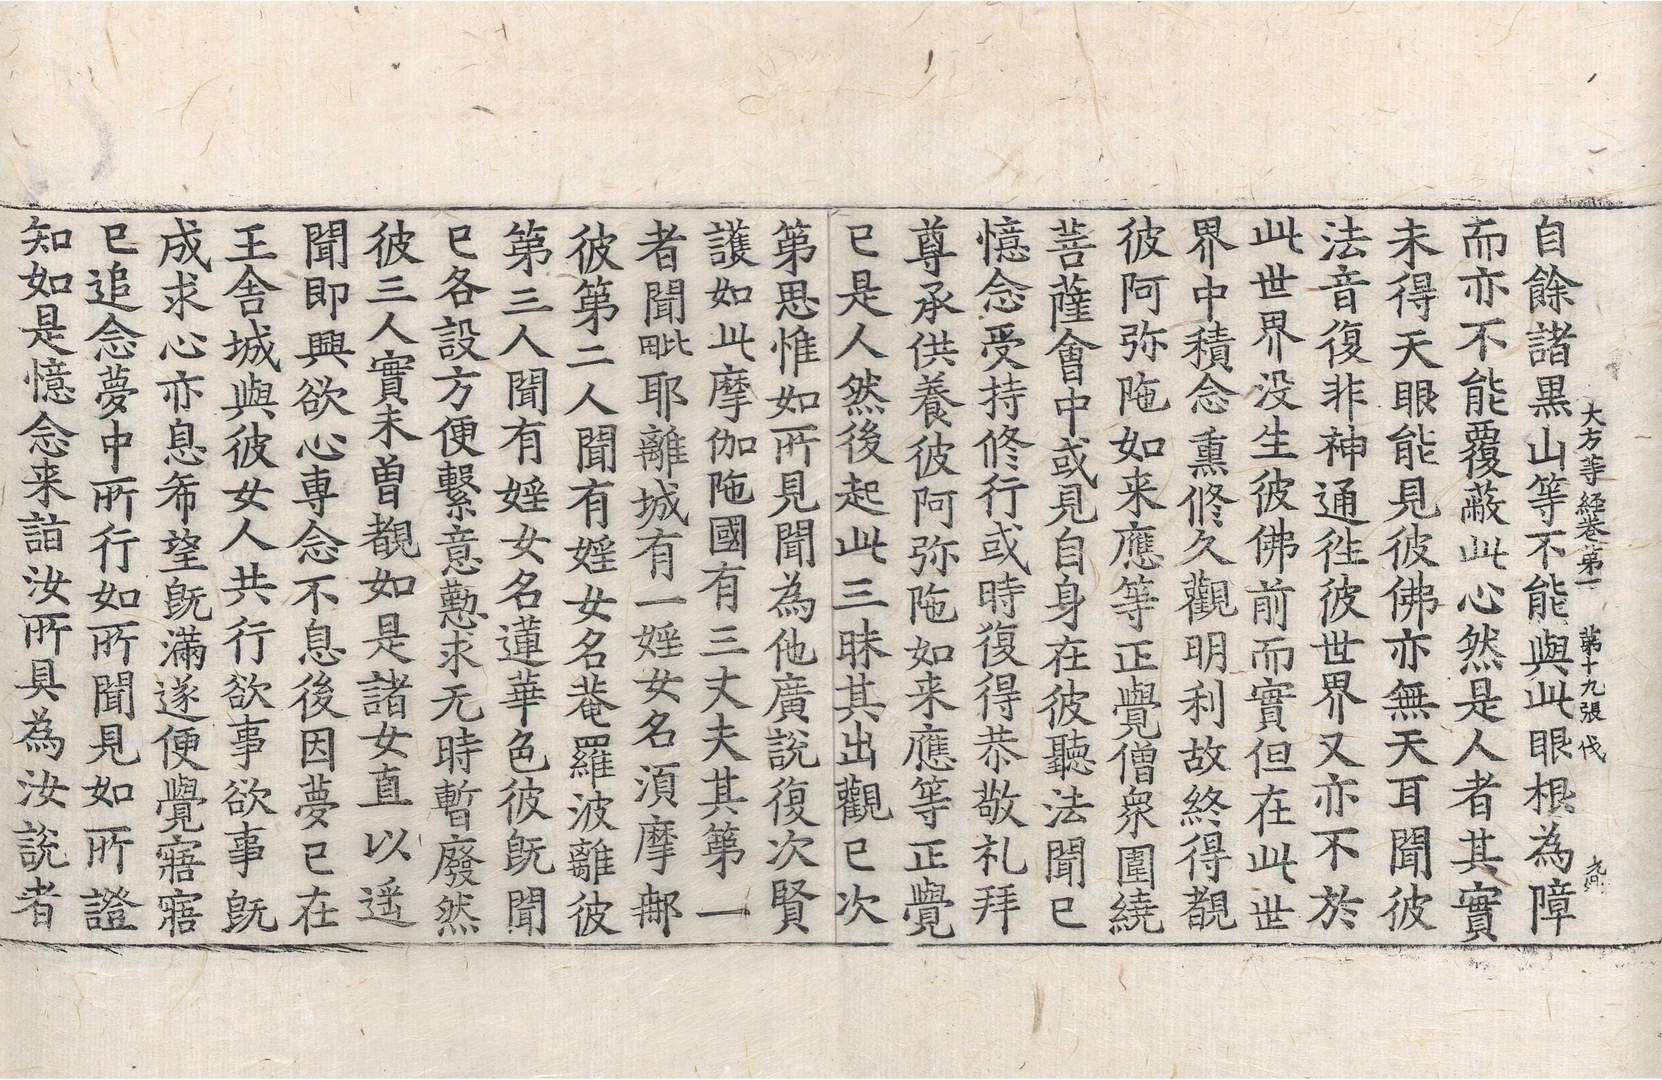 大方等経卷第一　第十九張　伐
自餘諸黒山等不能與此眼根為障
而亦不能覆蔽此心然是人者其實
未得天眼能見彼佛亦無天耳聞彼
法音復非神通徃彼世界又亦不於
此世界没生彼佛前而實但在此世
界中積念熏修久觀明利故終得覩
彼阿弥陁如来應等正覺僧衆圍繞
菩薩會中或見自身在彼聽法聞已
憶念受持修行或時復得恭敬礼拜
尊承供養彼阿弥陁如来應等正覺
已是人然後起此三昧其出觀已次
第思惟如所見聞為他廣說復次賢
護如此摩伽陁國有三丈夫其第一
者聞毗耶離城有一婬女名湏摩那
彼第二人聞有婬女名菴羅波離彼
第三人聞有婬女名蓮華色彼旣聞
已各設方便繫意懃求无時暫廢然
彼三人實未曽覩如是諸女直以遥
聞即興欲心専念不息後因夢已在
王舍城與彼女人共行欲事欲事旣
成求心亦息希望旣滿遂便覺寤寤
已追念夢中所行如所聞見如所證
知如是憶念来詣汝所具為汝說者